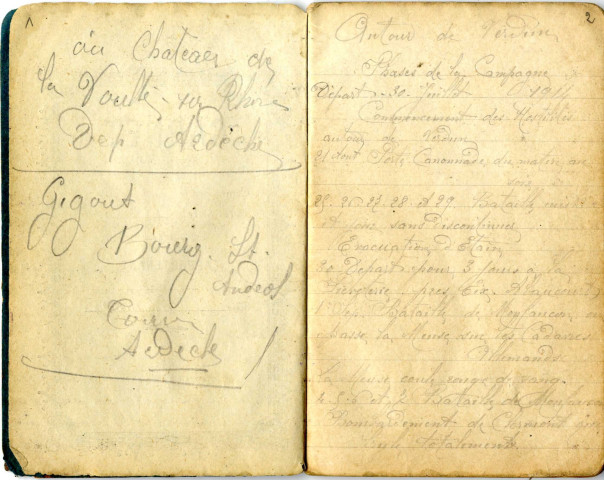 1
au Chateau de
la Voulte sur Rhône
Dep Ardèche
Gigout
Bourg. St.
Andeol
Ardèche
2
Autour de Verdun
Phases de la Campagne
Départ 30 Juillet 1914
Commencement des Hostilités
autour de Verdun
21 Aout Forte Canonnade du matin au
soir
25. 26. 27. 28. et 29. Bataille nuit
et jour sans discontinuer
Evacuation d'Etain
30 Depart pour 3 jours à la
près Eix
1er Sep. Bataille de Monfaucon on
passe la Meuse sur les Cadavres
Allemands
la Meuse coule rouge de sang.
4 5. 6 et 7. Bataille de Monfaucon
Bombardement de Clermont
totalement